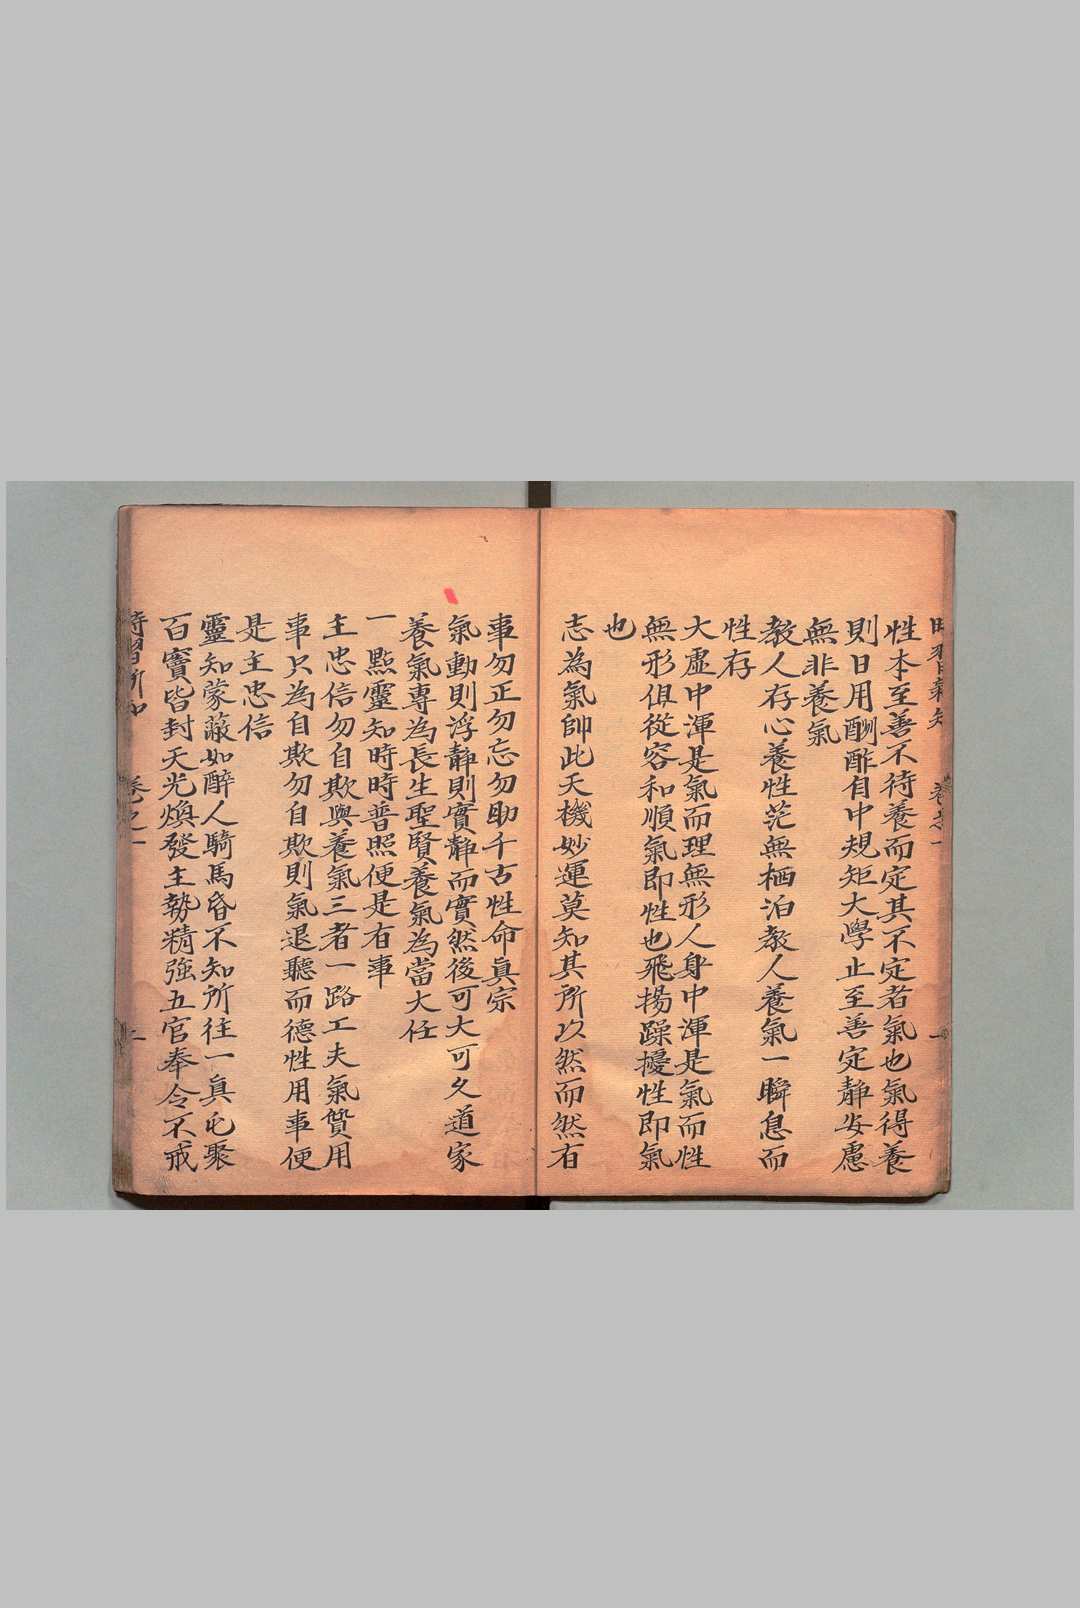 時習新知 卷之一 一
性本至善不待養而定其不定者氣也氣得養
則日用酬酢自中規矩大學止至善定靜安慮
無非養氣
教人存心養性茫無栖泊教人養氣一瞬息而
性存
大虛中渾是氣而理無形人身中渾是氣而性
無形俱從容和順氣即性也飛揚躁擾性即氣
也
志為氣帥此天機妙運莫知其所以然而然有
事勿正勿忘勿助千古性命真宗
氣動則浮靜則實靜而實然後可大可久道家
養氣專為長生聖賢養氣為當大任
一點靈知時時普照便是有事
主忠信勿自欺與養氣三者一路工夫氣質用
事只為自欺勿自欺則氣退聽而德性用事便
是主忠信
靈知蒙蔽如醉人騎馬昏不知所往一真宅聚
百竇皆封天光煥發主勢精強五官奉令不戒
時習新知 卷之一 二